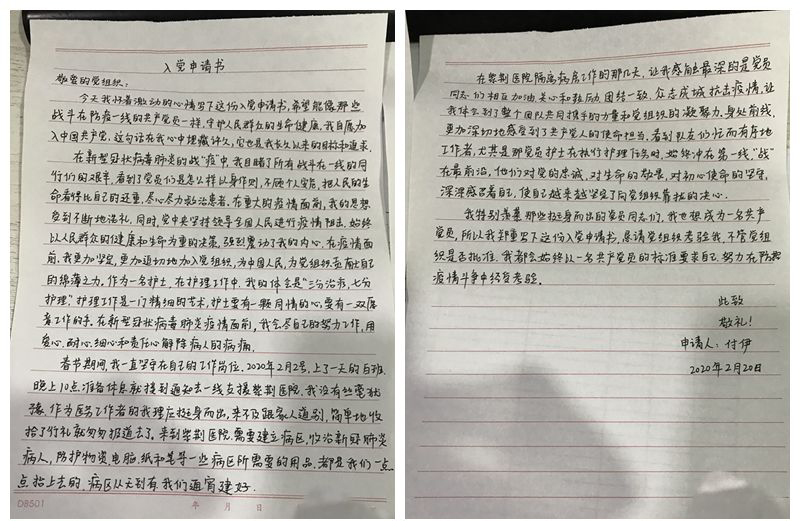 入党申请书
敬爱的党组织:
今天我怀着激动的心情写下这份入党申请书,希望能像那些
战斗在防疫一线的共产党员一样,守护人民群众的生命健康。我自愿加
入中国共产党,这句话在我心中埋藏许久,它也是我长久以来的目标和追求。
在新型冠状病毒肺炎的战“疫”中,我目睹了所有战斗在一线的同
行们的艰辛,看到了党员们是怎么样以身作则,不顾个人安危,把人民的生
命看得比自己的还重,尽心尽力救治患者。在重大的疫情面前,我的思想
受到不断地洗礼。同时,党中央坚持领导全国人民进行疫情阻击,始终
以人民群众的健康和生命为重的决策,强烈震动了我的内心。在疫情面
前,我更加坚定,更加迫切地加入党组织,为中国人民,为党组织贡献出自己
的绵薄之力。作为一名护士,在护理工作中,我的体会是“三分治疗,七分
护理”护理工作是一门精细的艺术,护士要有一颗同情的心,要有一双愿
者工作的手。在新型冠状病毒肺炎疫情面前,我会尽自己的努力工作,用
爱心、耐心、细心和责任心解除病人的病痛。
春节期间,我一直坚守在自己的工作岗位。2020年2月2号,上了一天的白班,
晚上10点,准备休息就接到通知去一线支援紫荆医院。我没有丝毫犹
豫,作为医务工作者的我理应挺身而出,来不及跟家人道别,简单地收
拾了行礼就匆匆报道去了。来到紫荆医院,需要建立病区,收治新冠肺炎
病人,防护物资,电脑,纸和笔等一些病区所需要的用品,都是我们一点
点抬上去的,病区从无到有,我们通宵建好。
D8501
年 月 日
在紫荆医院隔离病房工作的那几天,让我感触最深的是党员
同志们相互加油、关心和鼓励,团结一致、众志成城抗击疫情,让
我体会到了整个团队共同携手的力量和党组织的凝聚力。身处前线,
更加深切地感受到了共产党人的使命担当。看到队友们忙而有序地
工作着,尤其是那党员护士在执行护理任务时,始终冲在第一线,“战”
在最前沿,他们对党的忠诚、对生命的敬畏、对初心使命的坚守,
深深感召着自己,使自己越来越坚定了向党组织靠拢的决心。
我特别羡慕那些挺身而出的党员同志们,我也想成为一名共产
党员,所以我郑重写下这份入党申请书,恳请党组织考验我,不管党组
织是否批准,我都会始终以一名共产党员的标准要求自己,努力在防控
疫情斗争中经受考验。
此致
敬礼!
申请人:付伊
2020年2月20日